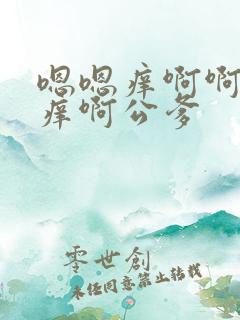 嗯嗯痒啊啊
痒啊公爹
零世創
未经同意禁止转载